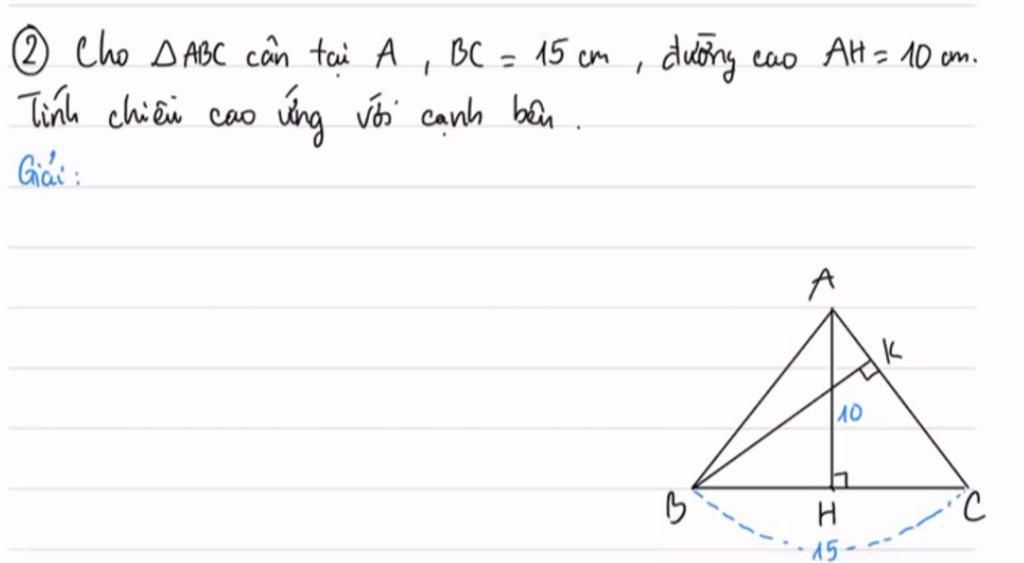 ② Cho △ABC cân tại A , BC = 15 cm , đường cao AH = 10 cm.
Tính chiều cao ứng với cạnh bên .
Giải :
A
K
10
B
H
C
15